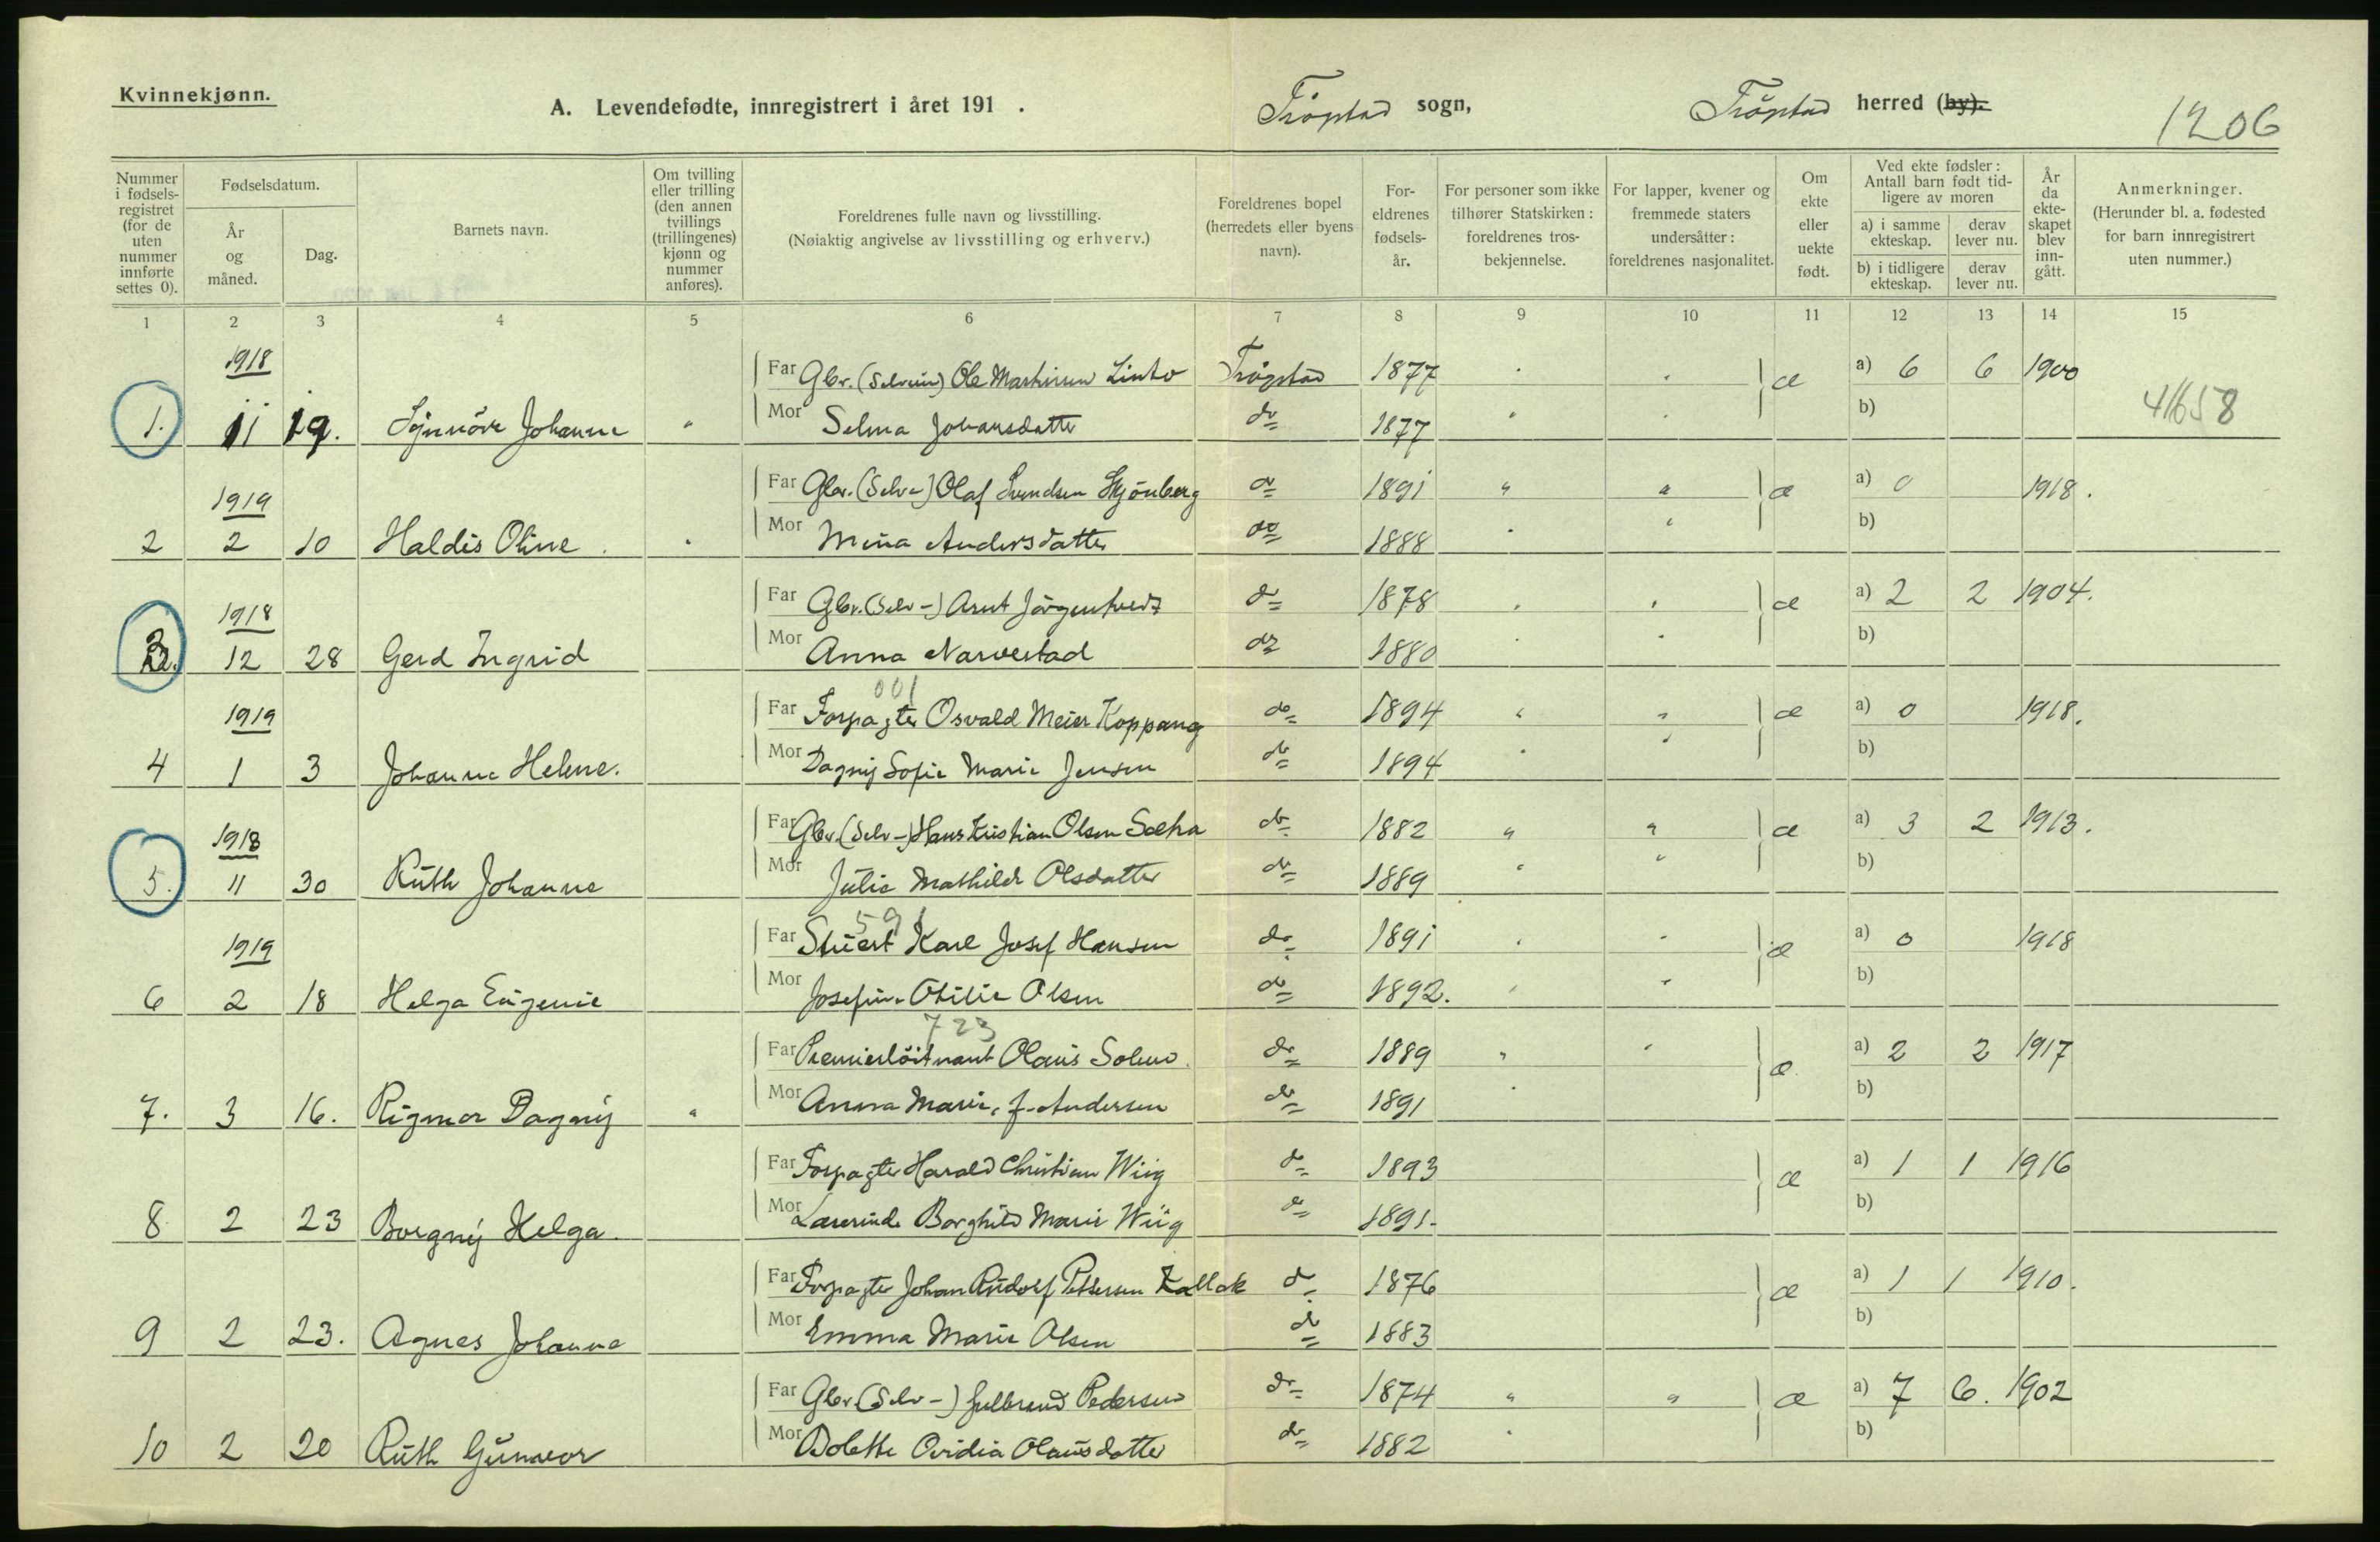 Kvinnekjønn.
A. Levendefødte, innregistrert i året 191 . Trögstad sogn, Trögstad herred (by).
1206
Nummer i fødselsregistret (for de uten nummer innførte settes 0).
Fødselsdatum.
År og måned.
Dag.
Barnets navn.
Om tvilling eller trilling (den annen tvillings (trillingenes) kjønn og nummer anføres).
Foreldrenes fulle navn og livsstilling. (Nøiaktig angivelse av livsstilling og erhverv.)
Foreldrenes bopel (herredets eller byens navn).
Foreldrenes fødselsår.
For personer som ikke tilhører Statskirken: foreldrenes trosbekjennelse.
For lapper, kvener og fremmede staters undersåtter: foreldrenes nasjonalitet.
Om ekte eller uekte født.
Ved ekte fødsler: Antall barn født tidligere av moren
a) i samme ekteskap. derav lever nu.
b) i tidligere ekteskap. derav lever nu.
År da ekteskapet blev inngått.
Anmerkninger. (Herunder bl. a. fødested for barn innregistrert uten nummer.)
1 2 3 4 5 6 7 8 9 10 11 12 13 14 15
1918
Far Gbr. (Selveier) Ole Martinsen Linto Trögstad 1877 " " æ a) 6 6 1900
1. 11 19. Synnöve Johanne " Mor Selma Johansdatter do 1877 " " b) 41658
1919
Far Gbr. (Selv-) Olaf Svendsen Skjönberg do 1891 " " æ a) 0 1918.
2 2 10 Haldis Oline . " Mor Mina Andersdatter do 1888 " " b)
1918
Far Gbr. (Selv-) Arnt Jörgentvedt do 1878 " " æ a) 2 2 1904.
3. 12 28 Gerd Ingrid Mor Anna Narvestad do 1880 " " b)
001
1919
Far Forpagter Osvald Meier Koppang do 1894 " " æ a) 0 1918.
4 1 3 Johanne Helene. Mor Dagny Sofie Marie Jensen do 1894 " " b)
1918
Far Gbr. (Selv-) Hans Kristian Olsen Sætra do 1882 " " æ a) 3 2 1913.
5. 11 30 Ruth Johanne Mor Julie Mathilde Olsdatter do 1889 " " b)
591
1919
Far Stuert Karl Josef Hansen do 1891 " " æ a) 0 1918
6 2 18 Helga Eugenie Mor Josefine Otilie Olsen do 1892. " " b)
723
Far Premierlöitnant Olaus Solem do 1889 " " æ. a) 2 2 1917
7. 3 16. Rigmor Dagny " Mor Anna Marie, f. Andersen do 1891 " b)
Far Forpagter Harald Christian Wiig do 1893 æ a) 1 1 1916
8 2 23 Borgny Helga. Mor Lærerinde Borghild Marie Wiig do 1891. b)
Far Forpagter Johan Rudolf Pettersen Kallak do 1876 æ a) 1 1 1910.
9 2 23. Agnes Johanne Mor Emma Marie Olsen do 1883 b)
Far Gbr. (Selv-) Gulbrand Pedersen do 1874 " " æ a) 7 6. 1902
10 2 20 Ruth Gunvor Mor Bolette Ovidia Olausdatter do 1882 " b)